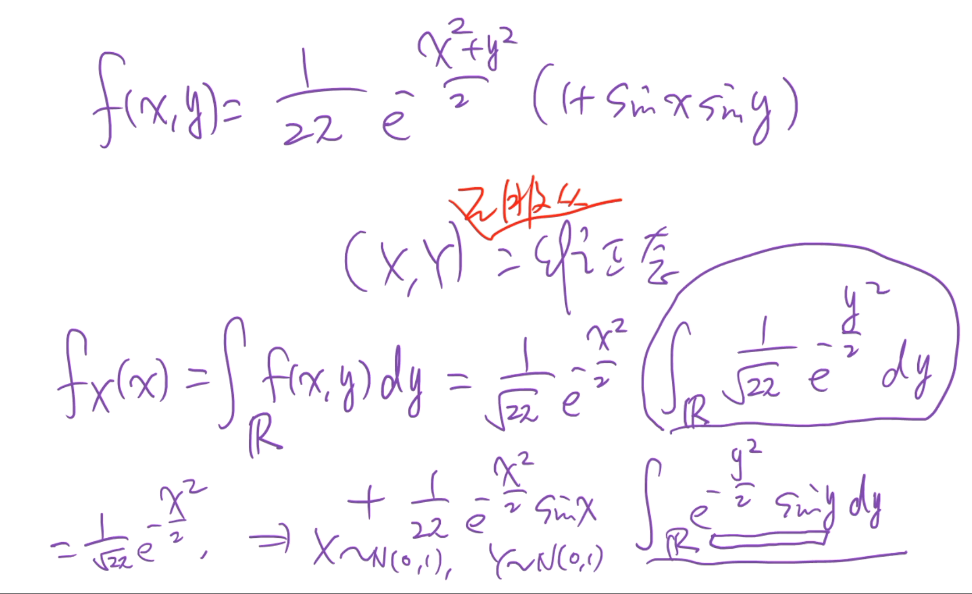 f(x,y)= 1/2π e^{-(x²+y²)/2} (1+ sin x sin y)
(X,Y) = 维正态
f_X(x) = ∫_ℝ f(x,y) dy = 1/√2π e^{-x²/2} ∫_ℝ 1/√2π e^{-y²/2} dy
+ 1/2π e^{-x²/2} sin x ∫_ℝ e^{-y²/2} sin y dy
= 1/√2π e^{-x²/2}, ⇒ X~N(0,1), Y~N(0,1)